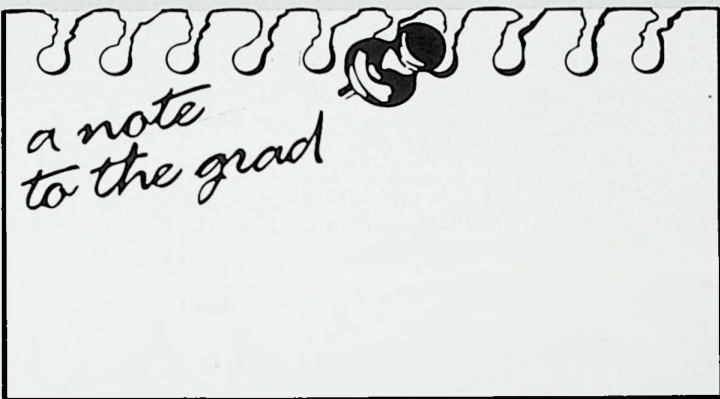 a note
to the grad